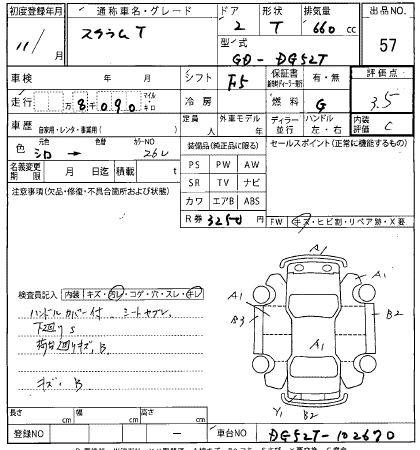 初度登録年月 通称車名・グレード ドア 形状 排気量 出品NO
11/ 月 スクラム T 2 T 660 cc 57
型/式
GD- DG52T
車検 年 月 シフト F5 保証書 有・無 評価点
走行 万 8千 090 マイル キロ 冷房 燃料 G 3.5
車歴 自家用・レンタ・事業用( ) 定員 人 外車モデル 年 ディーラー 並行 ハンドル 左・右 内装評価 C
色 シロ → 色替 カラーNO 26U 装備品(純正品に限る) セールスポイント(正常に機能するもの)
名義変更期限 月 日迄 積載 t PS PW AW
注意事項(欠品・修復・不具合箇所および状態) SR TV ナビ
カワ エアB ABS
R券 3250円 FW キズ・ヒビ割・リペア跡・X要
検査員記入 内装 キズ・汚レ・コゲ・穴・スレ・キレ
ハンドルカバー付 シートヤブレ
下廻りS
荷台廻りキズ、B
キズ、B
A1
A1
A1
B3
B2
A1
Y1 B2
長さ cm 幅 cm 高さ cm
登録NO 車台NO DG52T-102670